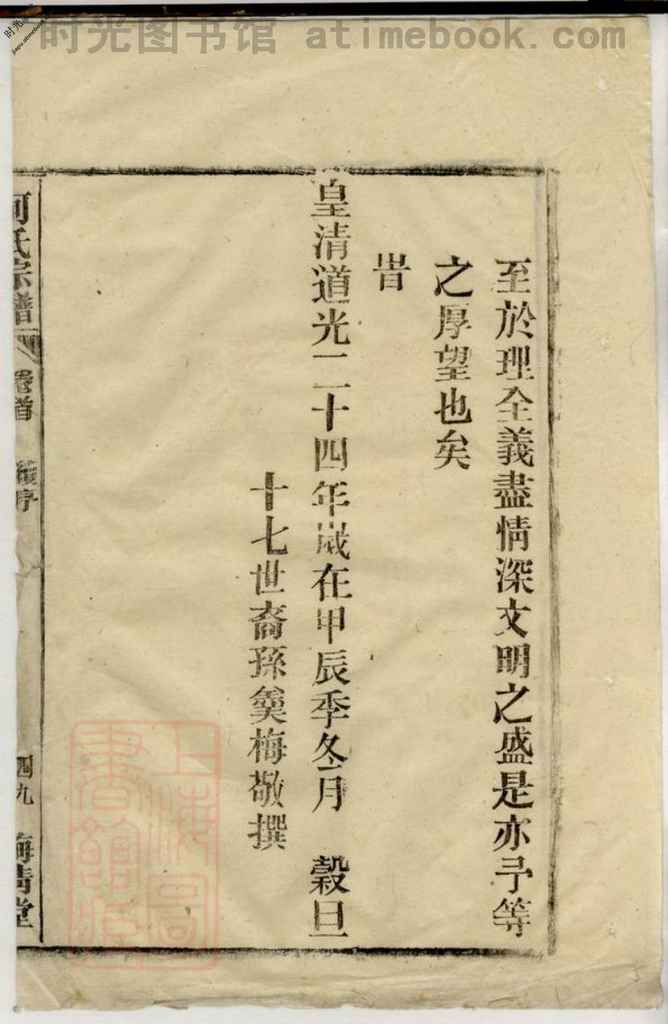 时光图书馆 atimebook.com
至於理全義盡情深文明之盛是亦予等
之厚望也矣
旹
皇清道光二十四年歲在甲辰季冬月 穀旦
十七世裔孫奠梅敬撰
何氏宗譜 卷首 續序 四九
上海圖書館藏